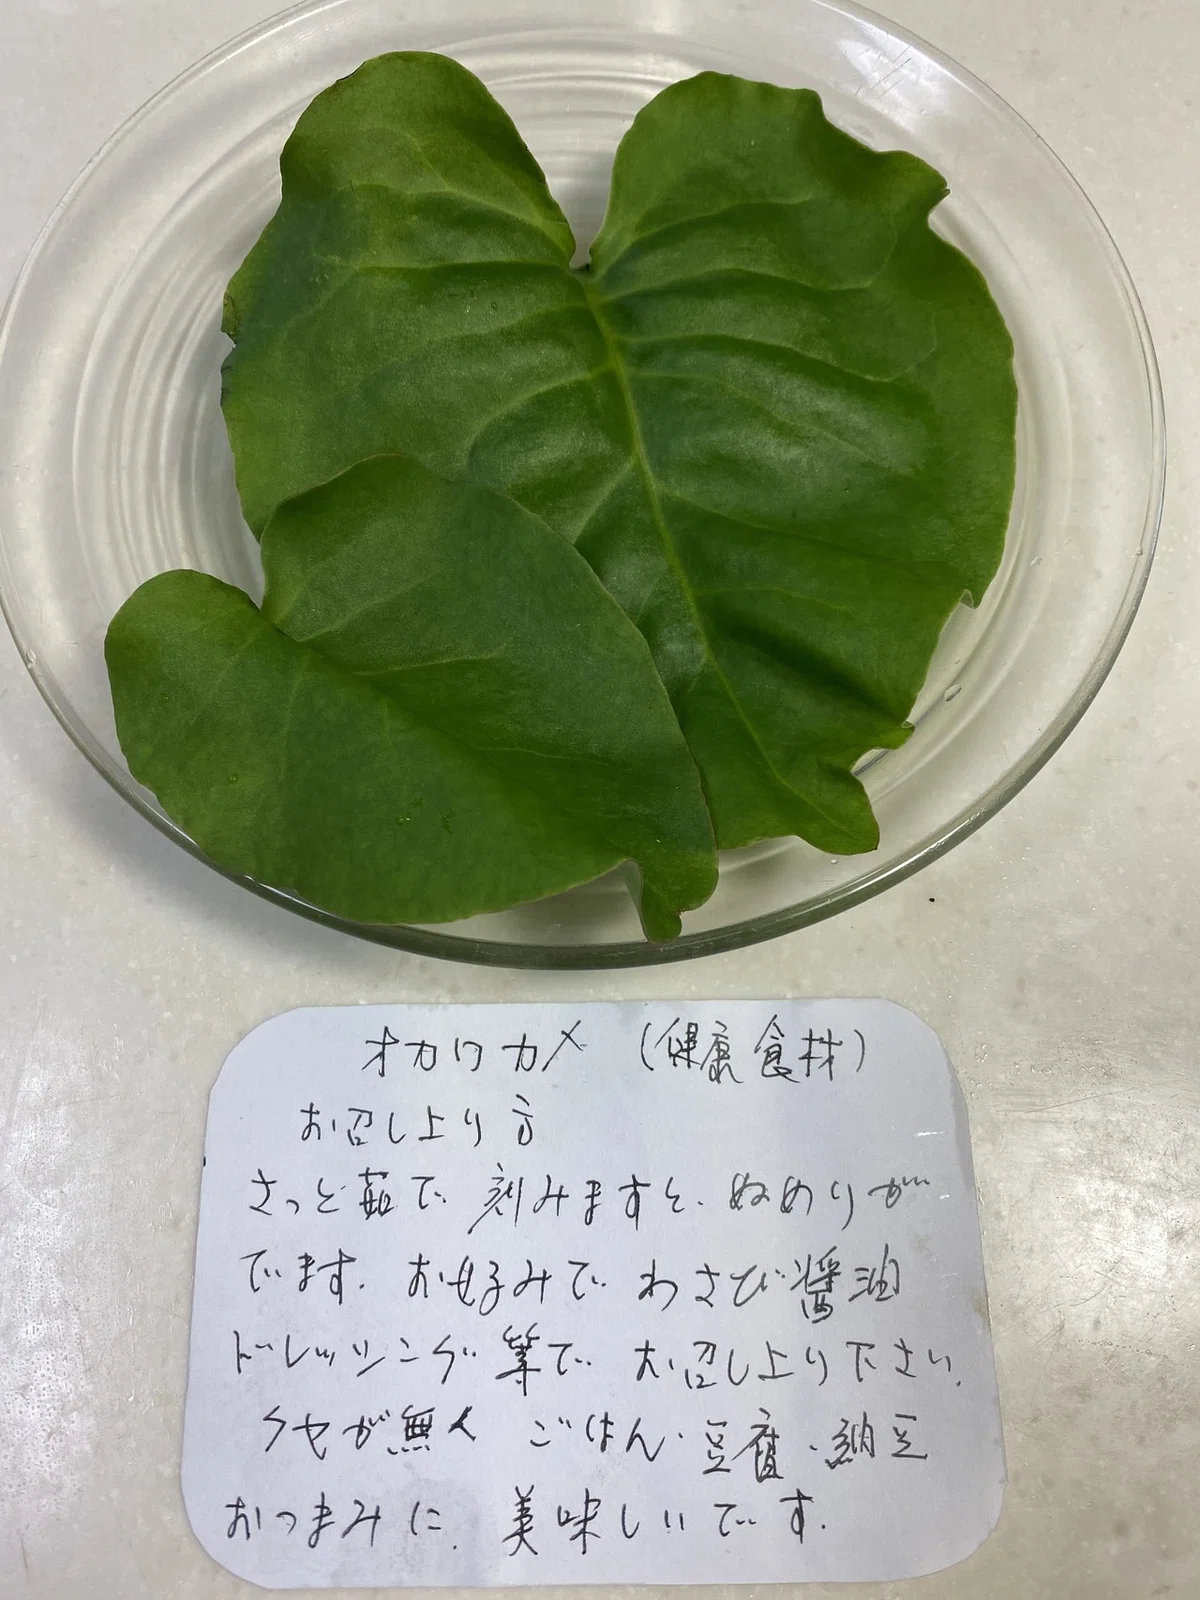 オカワカメ (健康食材)
お召し上り方
さっと茹で 刻みますと、ぬめりが
でます。お好みで わさび醤油
ドレッシング等で お召し上り下さい。
クセが無く ごはん・豆腐・納豆
おつまみに、美味しいです。